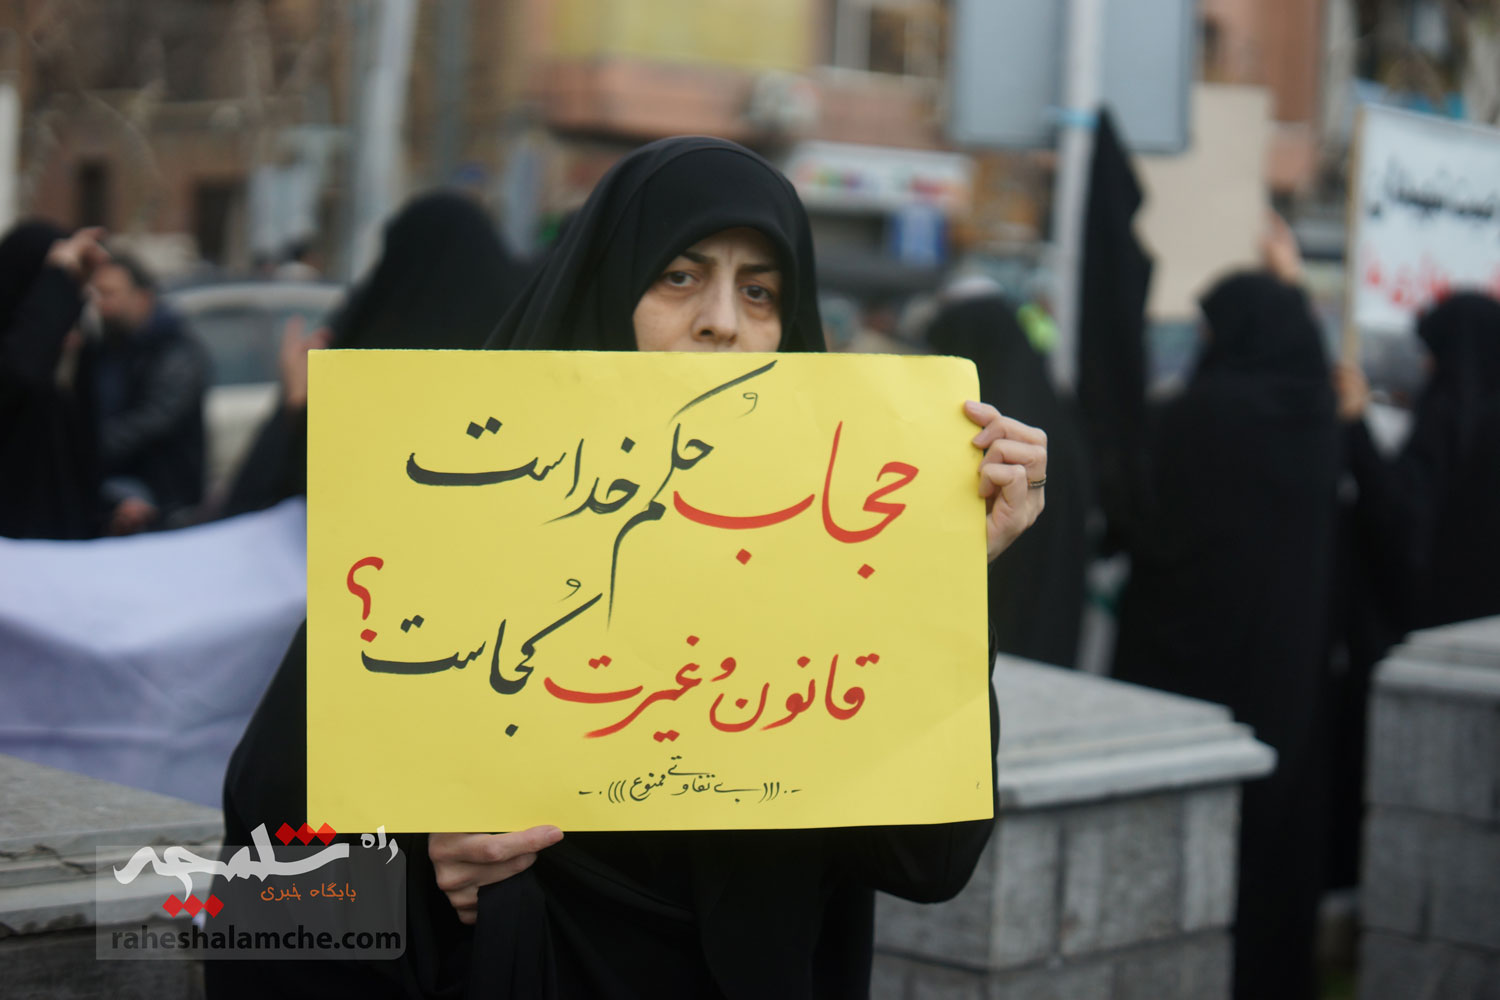 حجاب حکم خداست
قانون و غیرت کجاست؟
-.(((بی تفاوتی ممنوع))).-
راه شلمچه
پایگاه خبری
raheshalamche.com